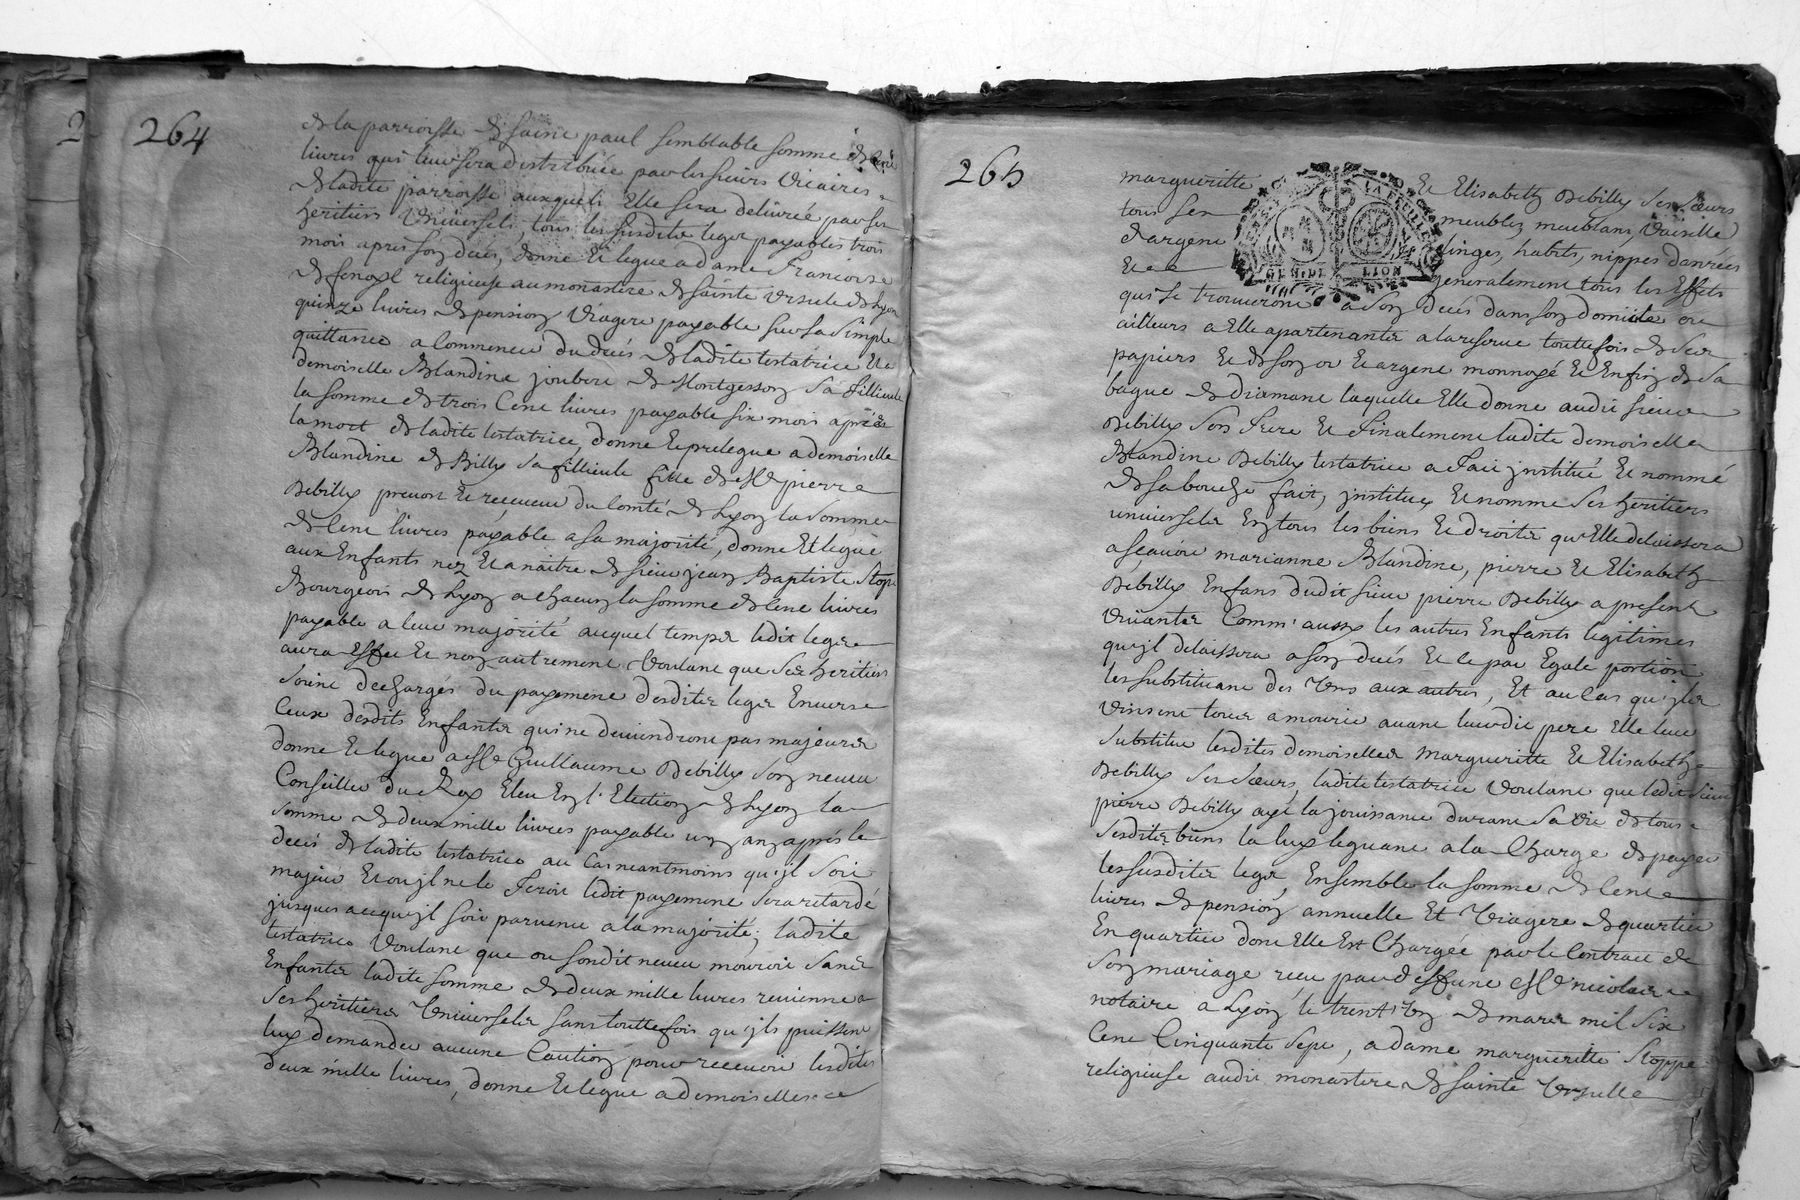 264
de la parroisse de saint paul semblable somme de cent
livres qui leur sera distribuée par les sieurs vicaires
de ladite parroisse auxquels Elle sera delivrée par ses
heritiers Universels, tous les susdits legez payables trois
mois apres son decés, donne Et legue a dame francoise
de fenoyl religieuse au monastere de sainte Ursule de Lyon
quinze livres de pension Viagere payable sur sa simple
quittance a Commencer du decés de ladite testatrice Et a
demoiselle Blandine joubert de Montgesson sa fillieule
la somme de trois Cent livres payable six mois aprés
la mort de ladite testatrice, donne Et prelegue a demoiselle
Blandine de Billy sa fillieule fille de Me pierre
Debilly prevost Et receveur du Comté de Lyon la somme
de Cent livres payable a sa majorité, donne Et legue
aux Enfants nez Et a naitre de sieur jean Baptiste Stope
Bourgeois de Lyon a chacun la somme de Cent livres
payable a leur majorité auquel temps ledit legs
aura effet Et non autrement Voulant que ses heritiers
soient dechargés du payement desdits legs Envers
Ceux desdits Enfants qui ne deviendront pas majeurs
donne Et legue a Me Guillaume Debilly son neveu
Conseiller du Roy Eleu En l'Election de Lyon la
somme de deux mille livres payable un an aprés le
decés de ladite testatrice au Cas neantmoins qu'jl soit
majeur Et ou jl ne le seroit ledit payement sera retardé
jusques a ce qu'jl soit parvenu a la majorité; ladite
testatrice Voulant que ou sondit neveu mouroit sans
Enfants ladite somme de deux mille livres revienne a
ses heritiers Universels sans touttefois qu'jls puissent
luy demander aucune Caution pour recevoir lesdites
deux mille livres, donne Et legue a demoiselles
265
margueritte Et Elisabeth Debilly ses sœurs
tous ses meubles meublans, vaiselle
d'argent linges, habits, nippes danrées
Et generalement tous les Effets
GEN. DE LION
qui se trouveront a son decés dans son domicile ou
ailleurs a Elle apartenants a la reserve touttefois de ses
papiers Et de son or Et argent monnoyé Et Enfin de sa
bague de diamant laquelle Elle donne audit sieur
Debilly son frere Et finalement ladite demoiselle
Blandine Debilly testatrice a fait jnstitué Et nommé
de sa bouche fait, jnstitue Et nomme ses heritiers
universels En tous les biens Et droits qu'Elle delaissera
a sçavoir marianne Blandine, pierre Et Elisabeth
Debilly Enfans dudit sieur pierre Debilly a present
vivants Comm'aussy les autres Enfants legitimes
qu'jl delaissera a son decés Et ce par Egale portion
les substituant des Uns aux autres, Et au Cas qu'jls
vinsent tous a mourir avant leurdit pere Elle leur
substitue lesdites demoiselles margueritte Et Elisabeth
Debilly ses sœurs, ladite testatrice Voulant que ledit sieur
pierre Debilly ayt la jouissance durant sa vie de tous
sesdits biens la luy leguant a la Charge de payer
les susdits legs, Ensemble la somme de Cent
livres de pension annuelle Et Viagere de quartier
En quartier dont Elle Est Chargée par le Contract de
son mariage receu par deffunt Me nicolas
notaire a Lyon le trent'Un de mars mil six
Cent Cinquante sept, a dame margueritte Stoppe
religieuse audit monastere de sainte Ursulle